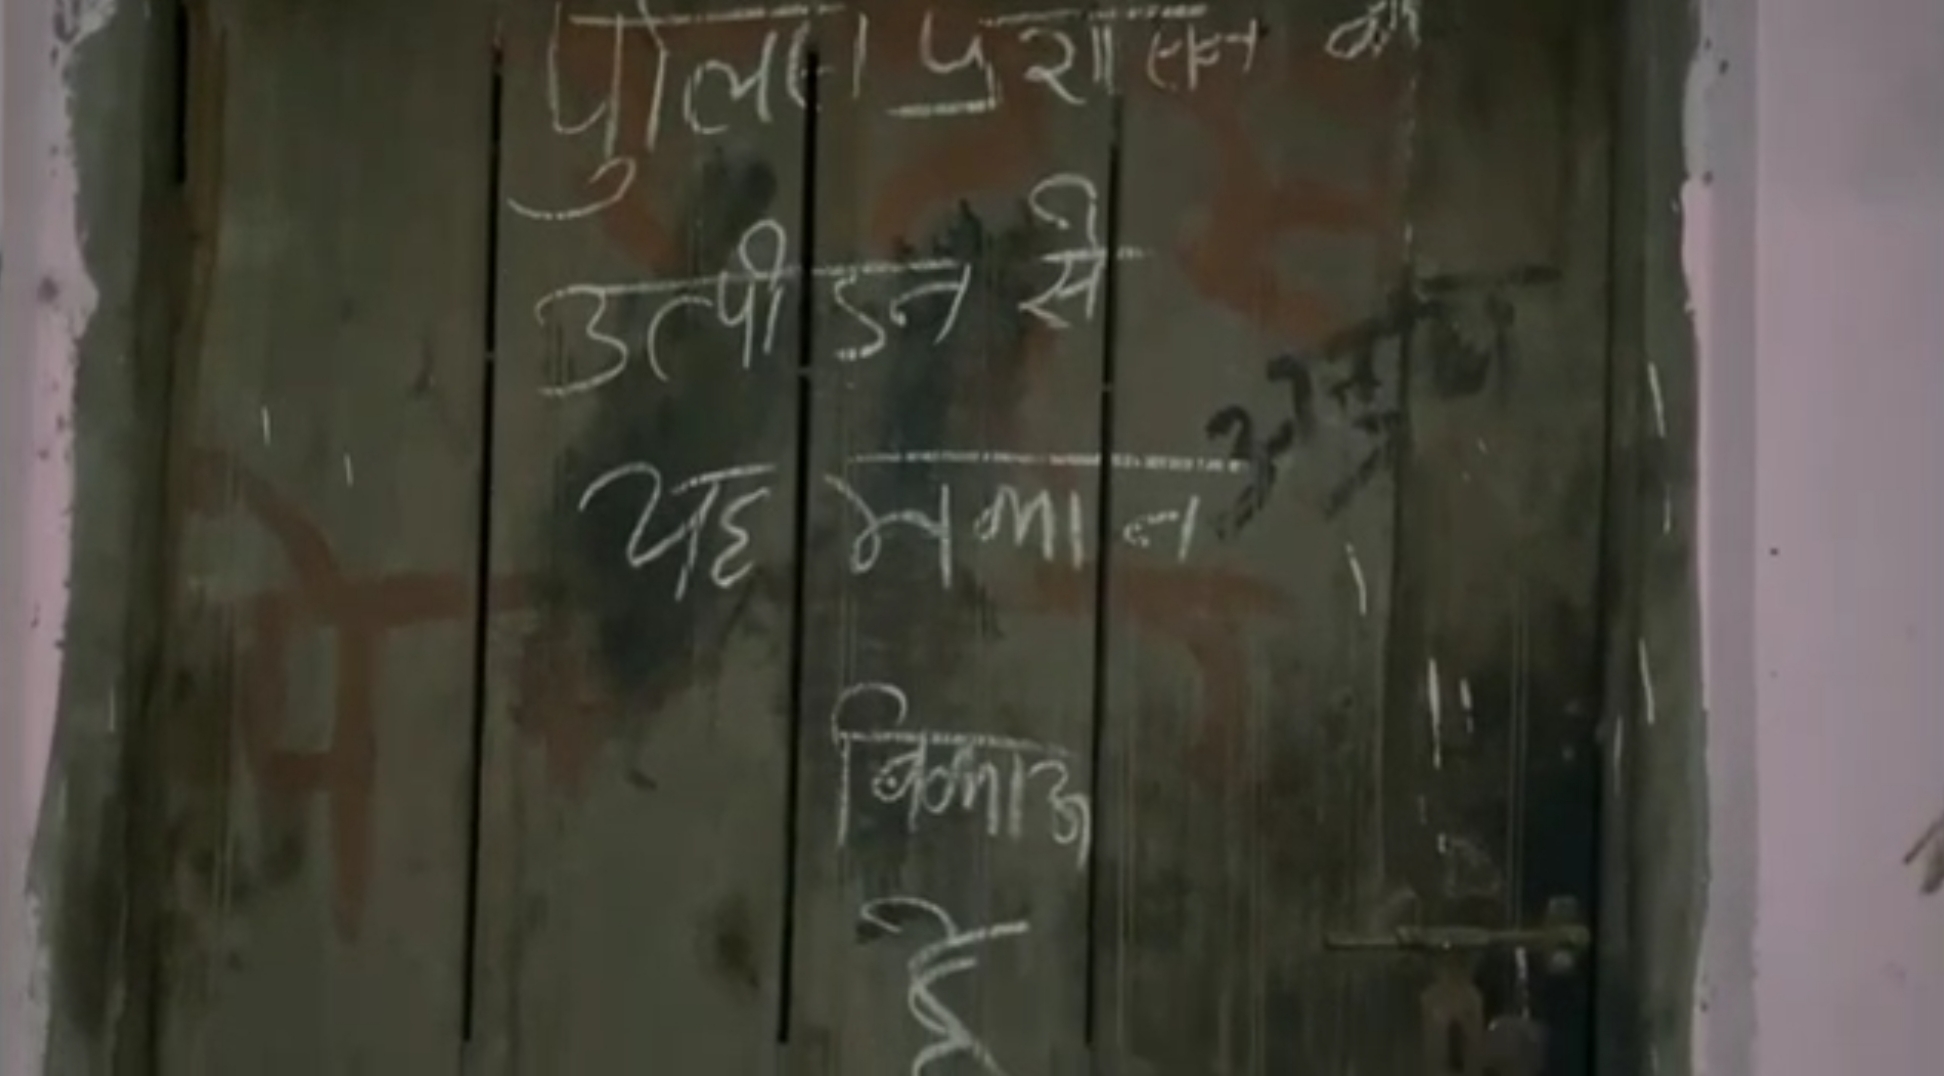 पुलिस प्रशासन के
उत्पीडन से
यह मकान
बिकाऊ
है